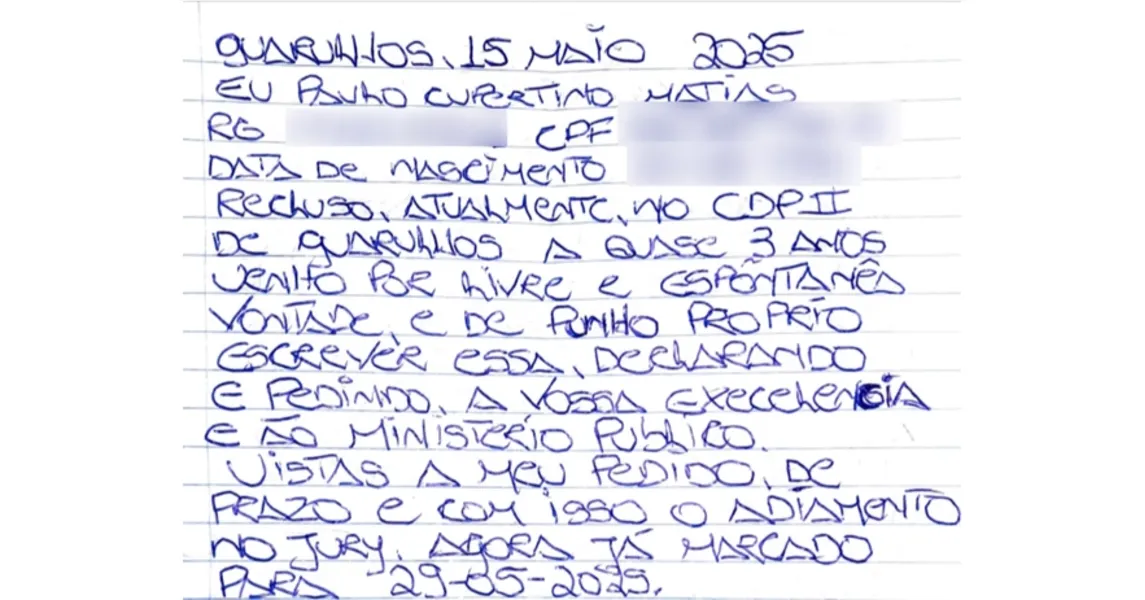 GUARULHOS, 15 MAIO 2025
EU PAULO CUPERTINO MATIAS
RG CPF
DATA DE NASCIMENTO
RECLUSO, ATUALMENTE, NO CDP II
DE GUARULHOS A QUASE 3 ANOS
VENHO POR LIVRE E ESPÔNTANÊA
VONTADE, E DE PUNHO PROPRIO
ESCREVER ESSA, DECLARANDO
E PEDINDO, A VOSSA EXECELENCIA
E ÃO MINISTERIO PUBLICO.
VISTAS A MEU PEDIDO, DE
PRAZO E COM ISSO O ADIAMENTO
NO JURY, AGORA JÁ MARCADO
PARA 29-05-2025.